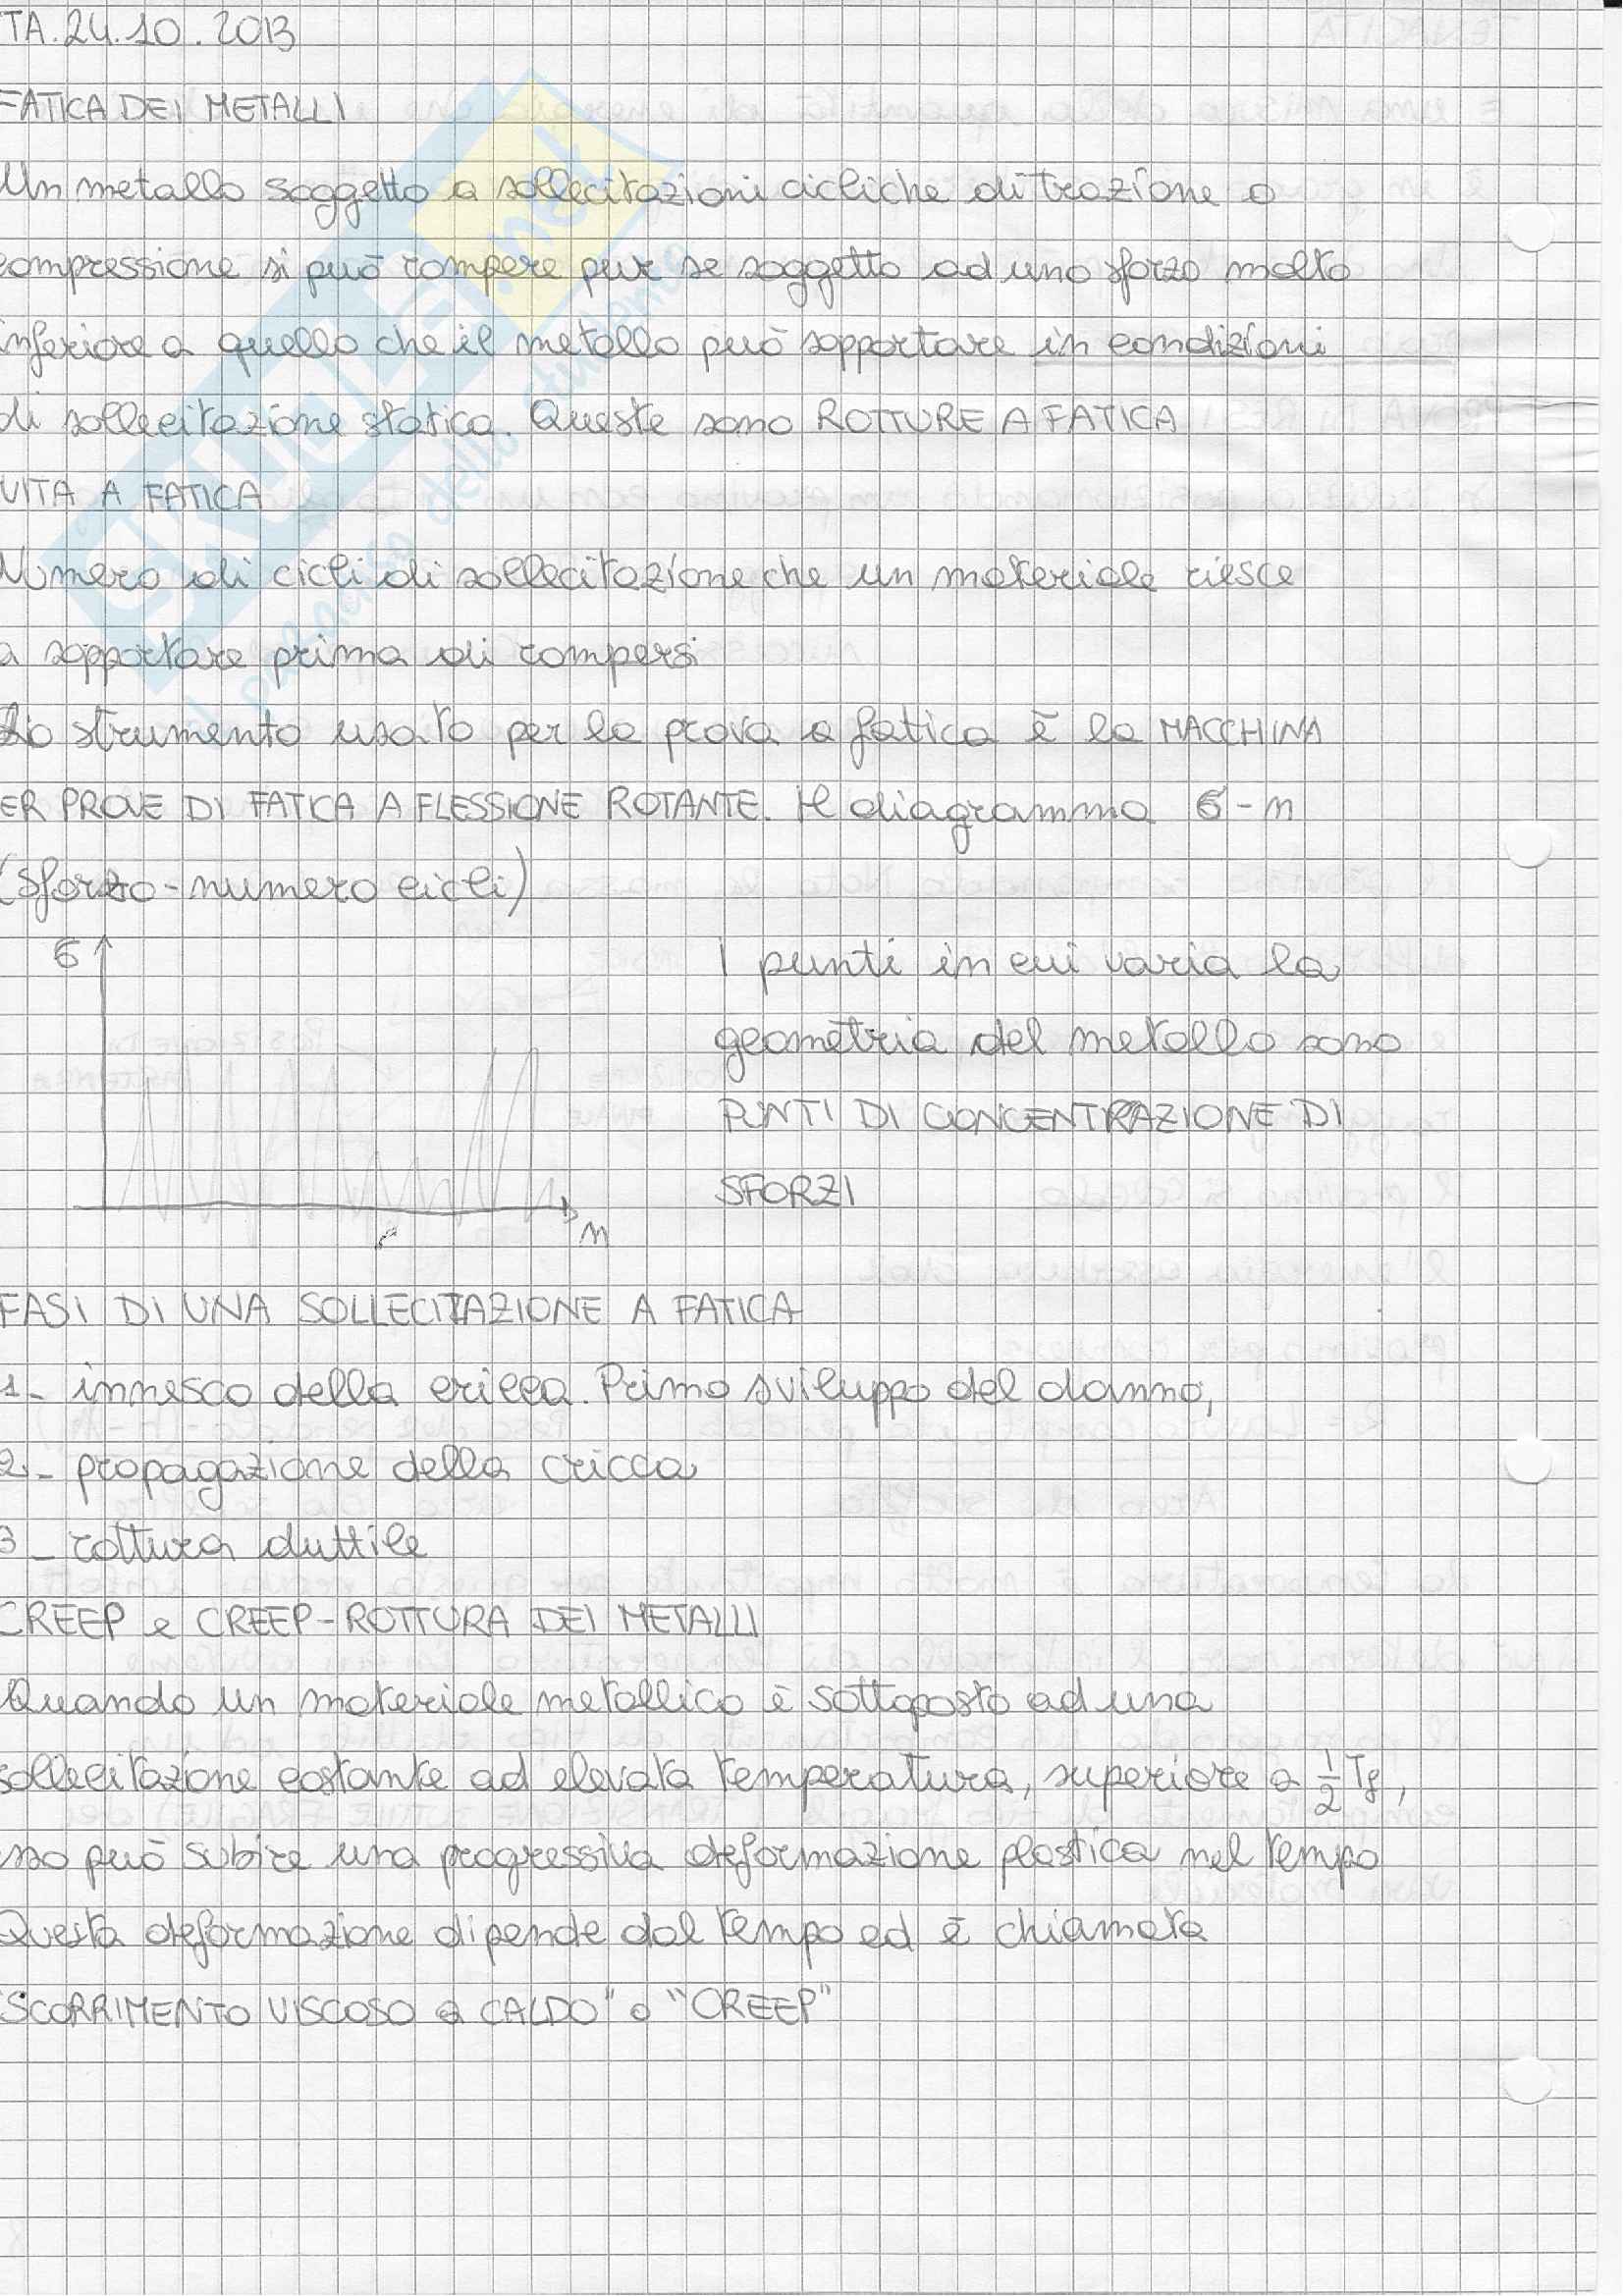 TA. 24.10.2013
FATICA DEI METALLI
Un metallo soggetto a sollecitazioni cicliche di trazione o
compressione si può rompere pur se soggetto ad uno sforzo molto
inferiore a quello che il metallo può sopportare in condizioni
di sollecitazione statica. Queste sono ROTTURE A FATICA
VITA A FATICA
Numero di cicli di sollecitazione che un materiale riesce
a sopportare prima di rompersi
Lo strumento usato per la prova a fatica è la MACCHINA
ER PROVE DI FATICA A FLESSIONE ROTANTE. Il diagramma σ-n
(sforzo-numero cicli)
σ
n
I punti in cui varia la
geometria del metallo sono
PUNTI DI CONCENTRAZIONE DI
SFORZI
FASI DI UNA SOLLECITAZIONE A FATICA
1- innesco della cricca. Primo sviluppo del danno,
2- propagazione della cricca
3- rottura duttile
CREEP e CREEP-ROTTURA DEI METALLI
Quando un materiale metallico è sottoposto ad una
sollecitazione costante ad elevata temperatura, superiore a 1/2 Tf,
sso può subire una progressiva deformazione plastica nel tempo
Questa deformazione dipende dal tempo ed è chiamata
"SCORRIMENTO VISCOSO a CALDO" o "CREEP"
SKUOLA.net
il paradiso dello studente